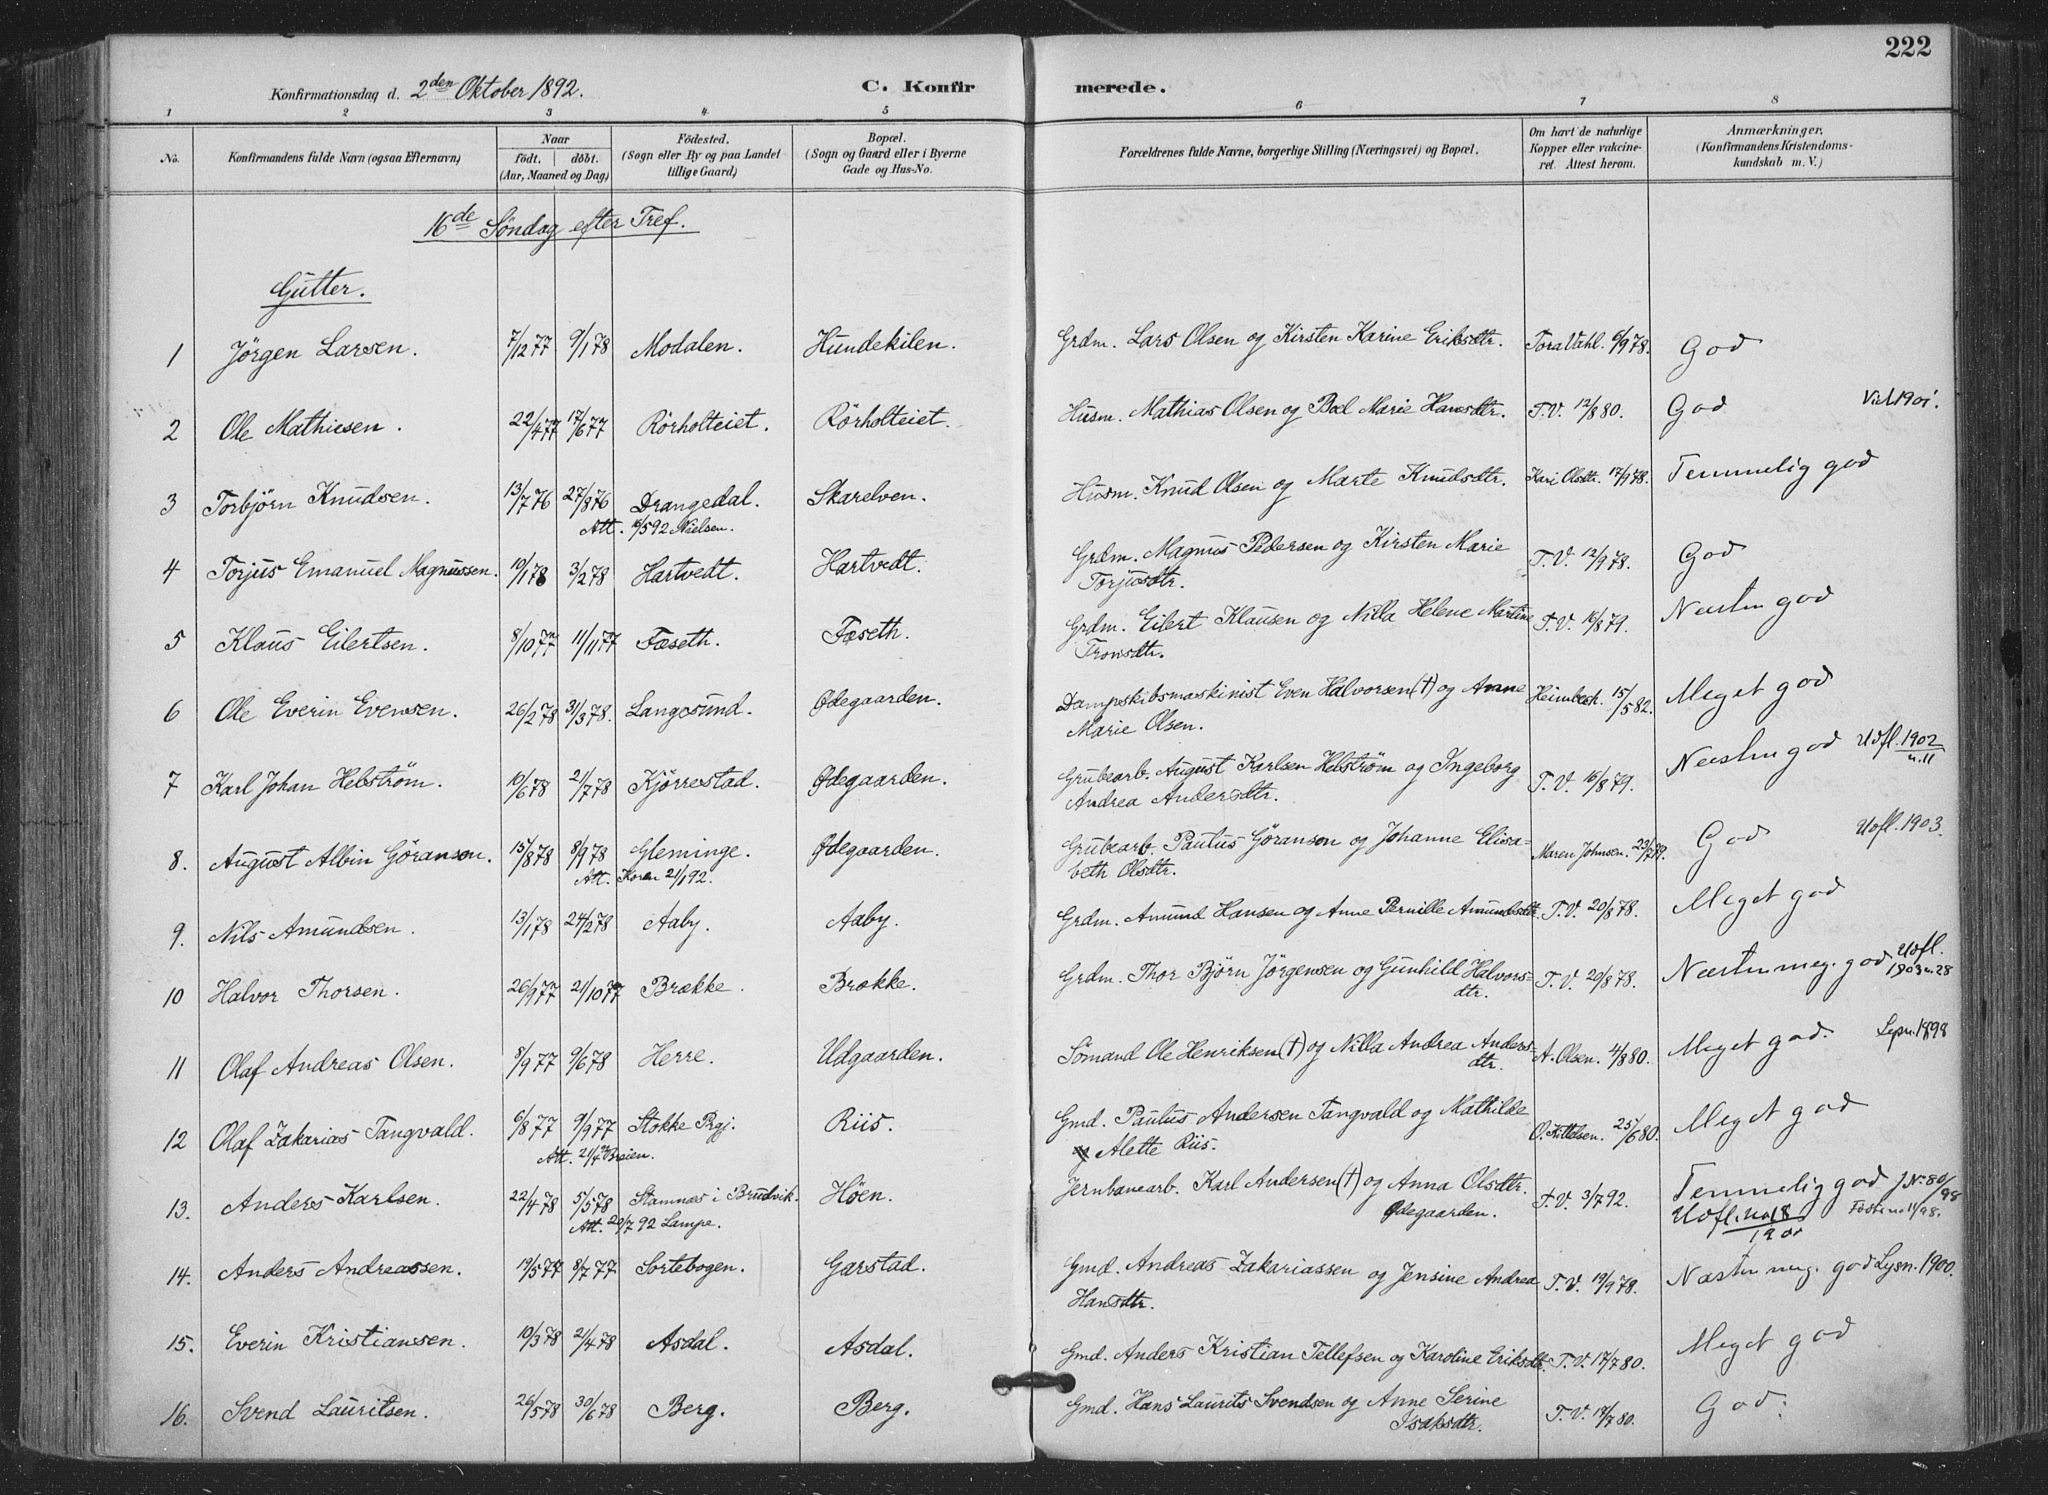 222
Konfirmationsdag d. 2den Oktober 1892. C. Konfir merede.
1 2 3 4 5 6 7 8
No. Konfirmandens fulde Navn (ogsaa Efternavn) Naar født. døbt. (Aar, Maaned og Dag) Fødested. (Sogn eller By og paa Landet tillige Gaard) Bopæl. (Sogn og Gaard eller i Byerne Gade og Hus-No. Forældrenes fulde Navne, borgerlige Stilling (Næringsvei) og Bopæl. Om havt de naturlige Kopper eller vakcineret. Attest herom. Anmærkninger. (Konfirmandens Kristendomskundskab m. V.)
16de Søndag efter Tref.
Gutter.
1 Jörgen Larsen. 7/12 77 9/1 78 Modalen. Hundekilen. Grdm. Lars Olsen og Kirsten Karine Eriksdtr. Tora Vahl. 6/9 78. God
2 Ole Mathiesen. 22/4 77 17/6 77 Rörholteiet. Rörholteiet. Husm. Mathias Olsen og Boel Marie Hansdtr. T.V. 12/8 80. God Viel 1901.
3 Torbjörn Knudsen. 13/7 76 27/8 76 Drangedal. Skarelven. Husm. Knud Olsen og Marte Knudsdtr. Kari Olsdtr. 17/9 78. Temmelig god
Att. /5 92 Nielsen.
4 Torjus Emanuel Magnussen. 10/1 78 3/2 78 Hartvedt. Hartvedt. Grdm. Magnus Pedersen og Kirsten Marie T.V. 12/9 78. God
Torjusdtr.
5 Klaus Eilertsen. 8/10 77 11/11 77 Fæseth. Fæseth. Grdm. Eilert Klausen og Nilla Helene Martine T.V. 16/8 79. Næsten god
Tronsdtr.
6 Ole Everin Evensen. 26/2 78 31/3 78. Langesund. Ödegaarden. Dampskibsmaskinist Even Halvorsen (†) og Anne Heimbech. 15/5 82. Meget god
Marie Olsen.
7 Karl Johan Helström. 10/6 78 21/7 78 Kjörrestad. Ödegaarden. Grubearb. August Karlsen Helström og Ingeborg T.V. 16/8 79. Næsten god Udfl. 1902 n. 11
Andrea Andersdtr.
8. August Albin Göranson. 15/8 78 8/9 78 Gleminge. Ödegaarden. Grubearb. Paulus Göranson og Johanne Elisa- Maren Johnsen. 23/7 79. God Udfl. 1903.
Att. Koren 21/1 92. beth Olsdtr.
9. Nils Amundsen. 13/1 78 24/2 78 Aaby. Aaby. Grdm. Amund Hansen og Anne Pernille Amundsdtr. T.V. 20/8 78. Meget god
10 Halvor Thorsen. 26/9 77 21/10 77 Brække. Brække. Grdm. Thor Björn Jörgensen og Gunhild Halvors- T.V. 20/8 78. Næsten meg. god Udfl. 1903 n. 28
dtr.
11 Olaf Andreas Olsen. 8/9 77 9/6 78 Herre. Udgaarden. Sömand Ole Henriksen (†) og Nilla Andrea Anders- A. Olsen. 4/8 80. Meget god. 1898
dtr.
12 Olaf Zakarias Tangvald. 6/8 77 9/9 77 Stokke Prgj. Riis. Gmd. Paulus Andersen Tangvald og Mathilde O. Kittelsen. 25/6 80. Meget god
Att. 21/4 92 Breien. Alette Riis.
13. Anders Karlsen. 22/4 78 5/5 78 Stamnæs i Brudvik. Höen. Jernbanearb. Karl Andersen (†) og Anna Olsdtr. T.V. 3/7 92. Temmelig god J.No 80/98
Att. 20/7 92 Lampe. Ödegaarden. Udfl. No 18 1901
14. Anders Andreassen. 19/5 77 8/7 77 Sortebogen. Garstad. Gmd. Andreas Zakariassen og Jensine Andrea T.V. 19/9 78. Næsten meg. god Lysn. 1900.
Hansdtr.
15. Everin Kristiansen. 10/3 78 21/4 78 Asdal. Asdal. Gmd. Anders Kristian Tellefsen og Karoline Eriksdtr. T.V. 17/7 80. Meget god
16. Svend Lauritsen. 26/5 78 30/6 78 Berg. Berg. Gmd. Hans Laurits Svendsen og Anne Serine T.V. 17/7 80. God.
Isaksdtr.